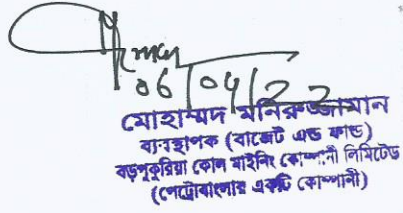 06/04/22
মোহাম্মদ মনিরুজ্জামান
ব্যবস্থাপক (বাজেট এন্ড ফান্ড)
বড়পুকুরিয়া কোল মাইনিং কোম্পানী লিমিটেড
(পেট্রোবাংলার একটি কোম্পানী)